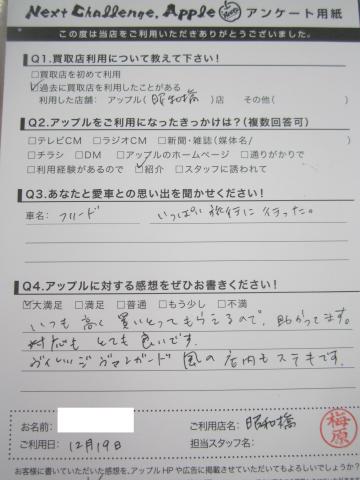 Next Challenge, Apple アンケート用紙
この度は当店をご利用いただきありがとうございました。
Q1.買取店利用について教えて下さい!
□買取店を初めて利用
☑過去に買取店を利用したことがある
利用した店舗: アップル(昭和橋)店 その他( )
Q2.アップルをご利用になったきっかけは?(複数回答可)
□テレビCM □ラジオCM □新聞・雑誌(媒体名/ )
□チラシ □DM □アップルのホームページ □通りがかりで
□利用経験があるので ☑紹介 □スタッフに誘われて
Q3.あなたと愛車との思い出を聞かせください!
車名: フリード いっぱい旅行に行った。
Q4.アップルに対する感想をぜひお書きください!
☑大満足 □満足 □普通 □もう少し □不満
いつも高く買いとってもらえるので、助かってます。
対応もとても良いです。
ヴィレッジヴァンガード風の店内もステキです。
お名前:
ご利用店名: 昭和橋
梅原
ご利用日: 12月19日
担当スタッフ名:
お客様に書いていただいた感想を、アップルHPや広告に掲載させていただいてもよろしいでしょうか?